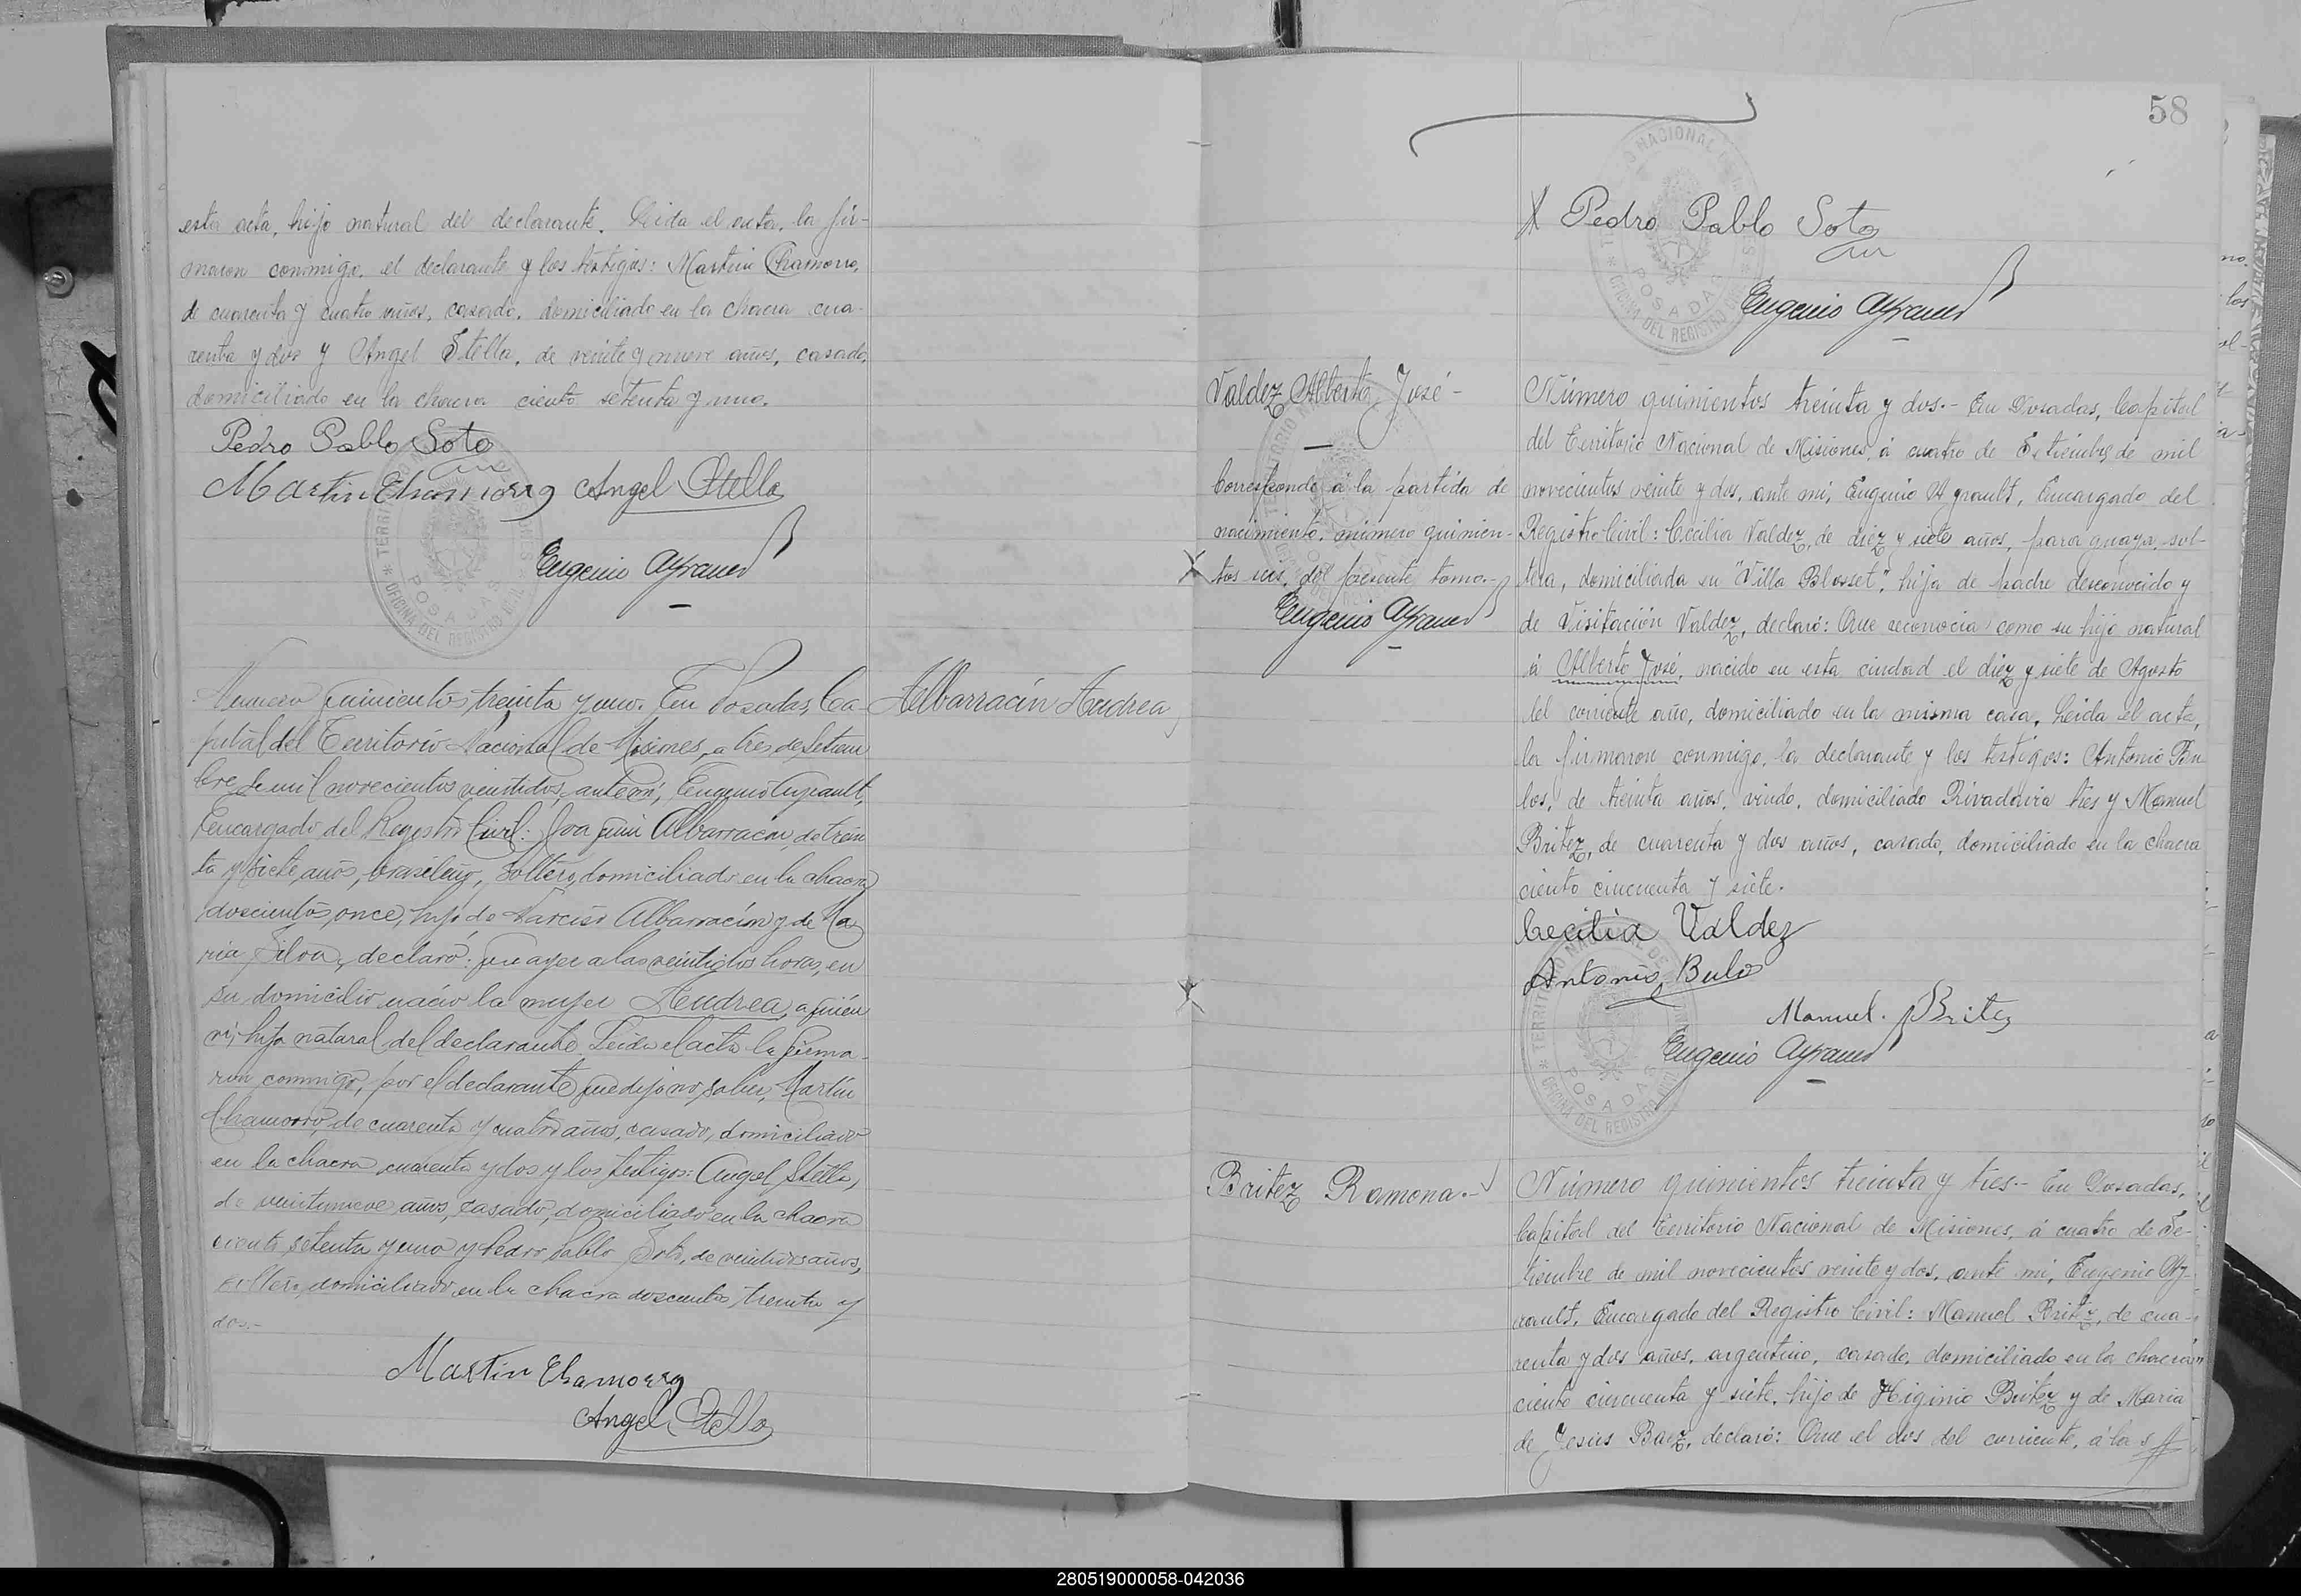 esta acta, hijo natural del declarante. Leida el acta, la fir-
maron conmigo, el declarante y los testigos: Martin Chamorro,
de cuarenta y cuatro años, casado, domiciliado en la chacra cua-
renta y dos y Angel Stella, de veinte y nueve años, casado,
domiciliado en la chacra ciento setenta y uno.
Pedro Pablo Soto
Martin Chamorro Angel Stella
Eugenio Ayrault
Numero quinientos treinta y uno. En Posadas, Ca-
pital del Territorio Nacional de Misiones, a tres de Setiem
bre de mil novecientos veintidos, ante mí, Eugenio Ayrault,
Encargado del Registro Civil: Joaquin Albarracin, de trein
ta y siete años, brasileño, soltero, domiciliado en la chacra
doscientos once, hijo de Narciso Albarracin y de Ma
ria Silva, declaró: que ayer a las veintidos horas, en
su domicilio nació la mujer Andrea, a quien
vi, hija natural del declarante Leida el acta la firma-
ron conmigo, por el declarante que dijo no saber, Martín
Chamorro, de cuarenta y cuatro años, casado, domiciliado
en la chacra cuarenta y dos y los testigos: Angel Stella,
de veintinueve años, casado, domiciliado en la chacra
ciento setenta y uno y Pedro Pablo Soto, de veintidos años,
soltero, domiciliado en la chacra doscientos treinta y
dos.-
Martin Chamorro
Angel Stella
Albarracín Andrea
58
X Pedro Pablo Soto
Eugenio Ayrault
Valdez Alberto José -
Corresponde á la partida de
nacimiento, número quinien-
tos seis, del presente tomo.-
Eugenio Ayrault
Número quinientos treinta y dos.- En Posadas, Capital
del Territorio Nacional de Misiones, á cuatro de Setiembre de mil
novecientos veinte y dos, ante mi, Eugenio Ayrault, Encargado del
Registro Civil: Cecilia Valdez, de diez y siete años, paraguaya, sol-
tera, domiciliada en "Villa Blosset", hija de padre desconocido y
de Visitación Valdez, declaró: Que reconocia como su hijo natural
á Alberto José, nacido en esta ciudad el diez y siete de Agosto
del corriente año, domiciliado en la misma casa. Leida el acta,
la firmaron conmigo, la declarante y los testigos: Antonio Bu
los, de treinta años, viudo, domiciliado Rivadavia tres y Manuel
Britez, de cuarenta y dos años, casado, domiciliado en la chacra
ciento cincuenta y siete.
Cecilia Valdez
Antonio Bulos
Manuel. Britez
Eugenio Ayrault
Britez Ramona.-
Número quinientos treinta y tres.- En Posadas,
Capital del Territorio Nacional de Misiones, á cuatro de Se-
tiembre de mil novecientos veinte y dos, ante mi, Eugenio Ay-
rault, Encargado del Registro Civil: Manuel Britez, de cua-
renta y dos años, argentino, casado, domiciliado en la chacra
ciento cincuenta y siete, hijo de Higinio Britez y de Maria
de Jesús Baez, declaró: Que el dos del corriente, á las
280519000058-042036